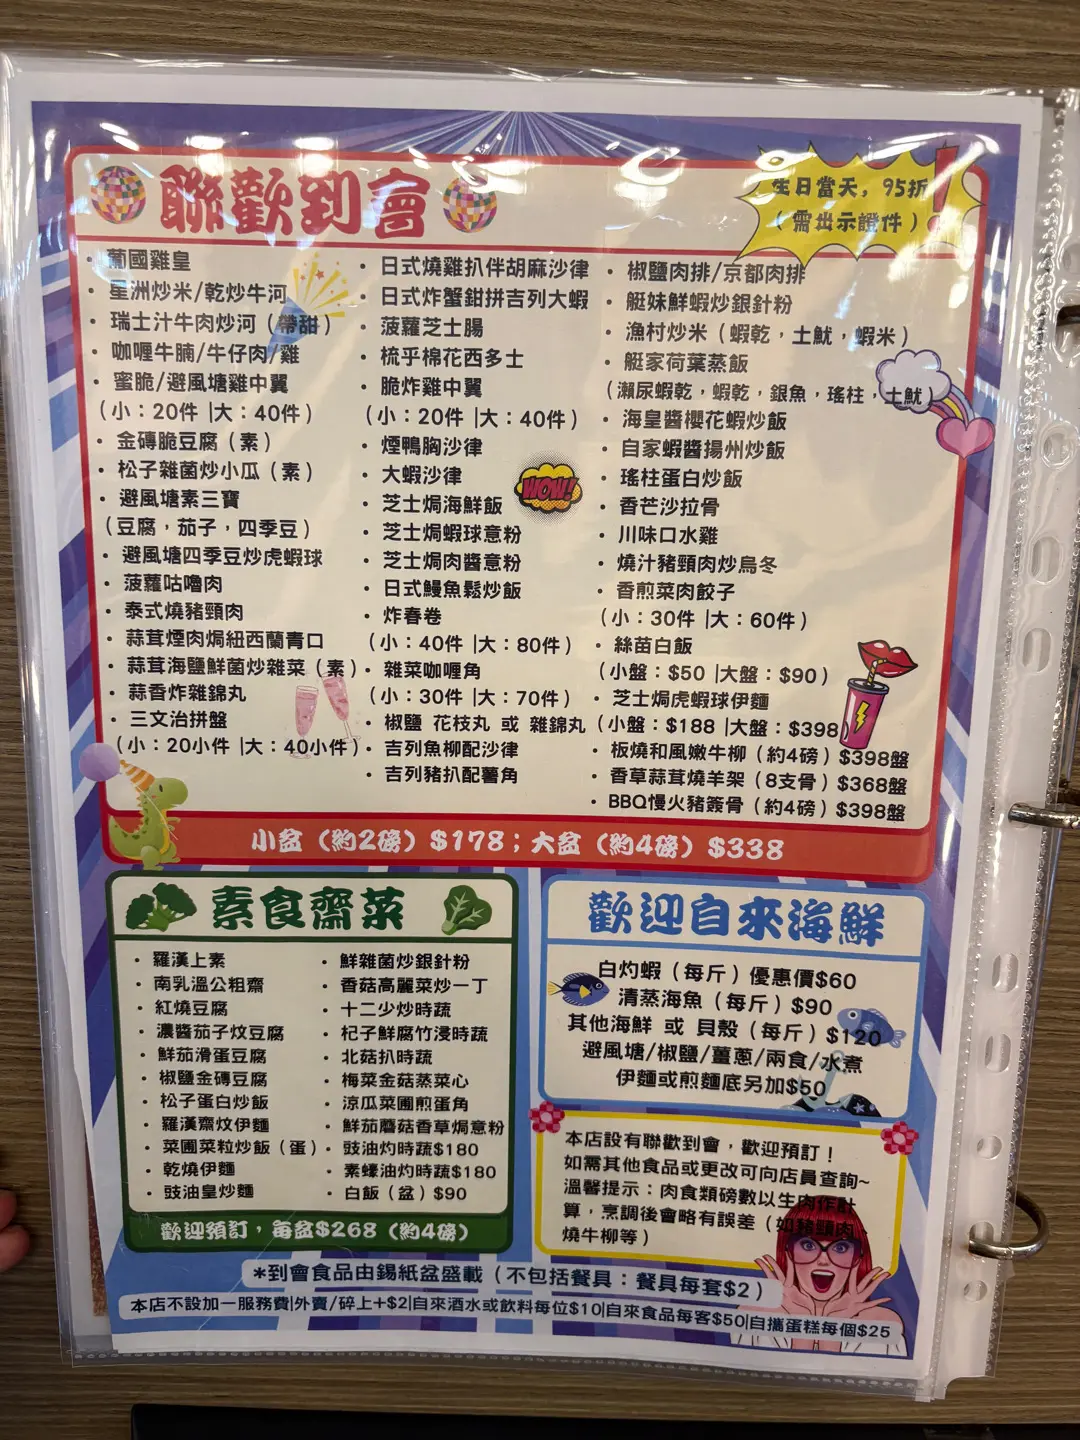 聯歡到會
生日當天，95折
（需出示證件）
!
· 葡國雞皇
· 星洲炒米/乾炒牛河
· 瑞士汁牛肉炒河（帶甜）
· 咖喱牛腩/牛仔肉/雞
· 蜜脆/避風塘雞中翼
（小：20件 |大：40件）
· 金磚脆豆腐（素）
· 松子雜菌炒小瓜（素）
· 避風塘素三寶
（豆腐，茄子，四季豆）
· 避風塘四季豆炒虎蝦球
· 菠蘿咕嚕肉
· 泰式燒豬頸肉
· 蒜茸煙肉焗紐西蘭青口
· 蒜茸海鹽鮮菌炒雜菜（素）
· 蒜香炸雜錦丸
· 三文治拼盤
（小：20小件 |大：40小件）
· 日式燒雞扒伴胡麻沙律
· 日式炸蟹鉗拼吉列大蝦
· 菠蘿芝士腸
· 梳乎棉花西多士
· 脆炸雞中翼
（小：20件 |大：40件）
· 煙鴨胸沙律
· 大蝦沙律
· 芝士焗海鮮飯
· 芝士焗蝦球意粉
· 芝士焗肉醬意粉
· 日式鰻魚鬆炒飯
· 炸春卷
（小：40件 |大：80件）
· 雜菜咖喱角
（小：30件 |大：70件）
· 椒鹽 花枝丸 或 雜錦丸
· 吉列魚柳配沙律
· 吉列豬扒配薯角
WOW!
· 椒鹽肉排/京都肉排
· 艇妹鮮蝦炒銀針粉
· 漁村炒米（蝦乾，土魷，蝦米）
· 艇家荷葉蒸飯
（瀨尿蝦乾，蝦乾，銀魚，瑤柱，土魷）
· 海皇醬櫻花蝦炒飯
· 自家蝦醬揚州炒飯
· 瑤柱蛋白炒飯
· 香芒沙拉骨
· 川味口水雞
· 燒汁豬頸肉炒烏冬
· 香煎菜肉餃子
（小：30件 |大：60件）
· 絲苗白飯
（小盤：$50 |大盤：$90）
· 芝士焗虎蝦球伊麵
（小盤：$188 |大盤：$398）
· 板燒和風嫩牛柳（約4磅）$398盤
· 香草蒜茸燒羊架（8支骨）$368盤
· BBQ慢火豬簽骨（約4磅）$398盤
小盆（約2磅）$178；大盆（約4磅）$338
素食齋菜
· 羅漢上素
· 南乳溫公粗齋
· 紅燒豆腐
· 濃醬茄子炆豆腐
· 鮮茄滑蛋豆腐
· 椒鹽金磚豆腐
· 松子蛋白炒飯
· 羅漢齋炆伊麵
· 菜圃菜粒炒飯（蛋）
· 乾燒伊麵
· 豉油皇炒麵
· 鮮雜菌炒銀針粉
· 香菇高麗菜炒一丁
· 十二少炒時蔬
· 杞子鮮腐竹浸時蔬
· 北菇扒時蔬
· 梅菜金菇蒸菜心
· 涼瓜菜圃煎蛋角
· 鮮茄蘑菇香草焗意粉
· 豉油灼時蔬$180
· 素蠔油灼時蔬$180
· 白飯（盆）$90
歡迎預訂，每盆$268（約4磅）
歡迎自來海鮮
白灼蝦（每斤）優惠價$60
清蒸海魚（每斤）$90
其他海鮮 或 貝殼（每斤）$120
避風塘/椒鹽/薑蔥/兩食/水煮
伊麵或煎麵底另加$50
本店設有聯歡到會，歡迎預訂！
如需其他食品或更改可向店員查詢~
溫馨提示：肉食類磅數以生肉作計
算，烹調後會略有誤差（如豬頸肉，
燒牛柳等）
*到會食品由錫紙盆盛載（不包括餐具：餐具每套$2）
本店不設加一服務費|外賣/碎上+$2|自來酒水或飲料每位$10|自來食品每客$50|自攜蛋糕每個$25